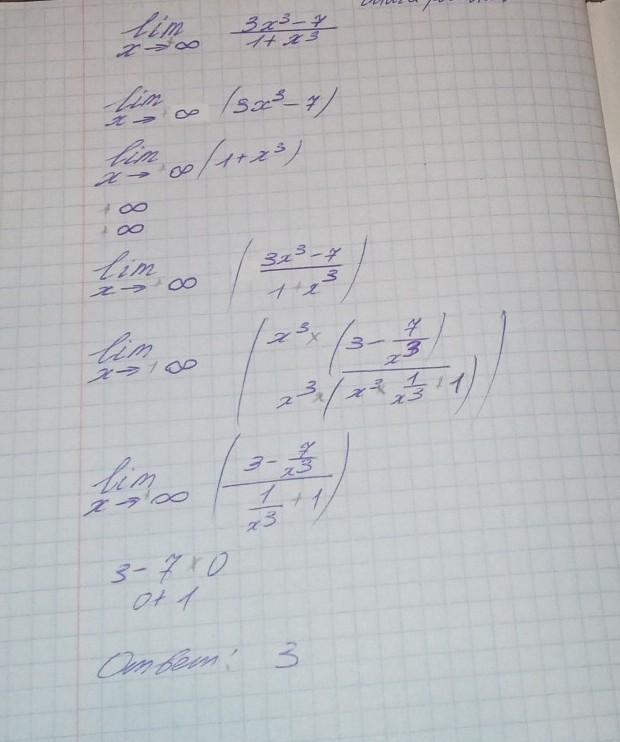 lim x→∞ (3x³-7)/(1+x³)
lim x→+∞ (3x³-7)
lim x→+∞ (1+x³)
+∞
+∞
lim x→+∞ ((3x³-7)/(1+x³))
lim x→+∞ ((x³×(3-7/x³))/(x³×(x³×1/x³+1)))
lim x→+∞ ((3-7/x³)/(1/x³+1))
3-7×0
0+1
Ответ: 3